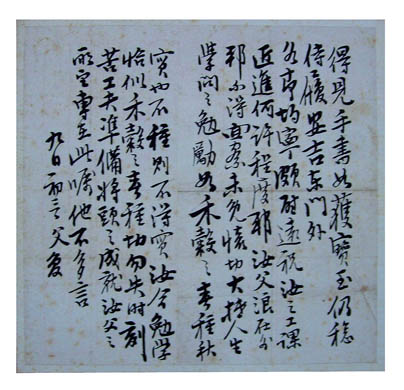 得見手書如獲寶玉仍稔
侍履安吉東門外
各節均寧頗慰遠祝汝之工課
近進何許程度耶汝父浪在外
不得面察未免懷切大抵人生
學問之勉勵如禾穀之春種秋
實也不種則不得實汝今勉學
恰似禾穀之春種切勿失時刻
苦工夫準備將頭之成就汝父之
所望專在此嘱他不多言
九 初三 父